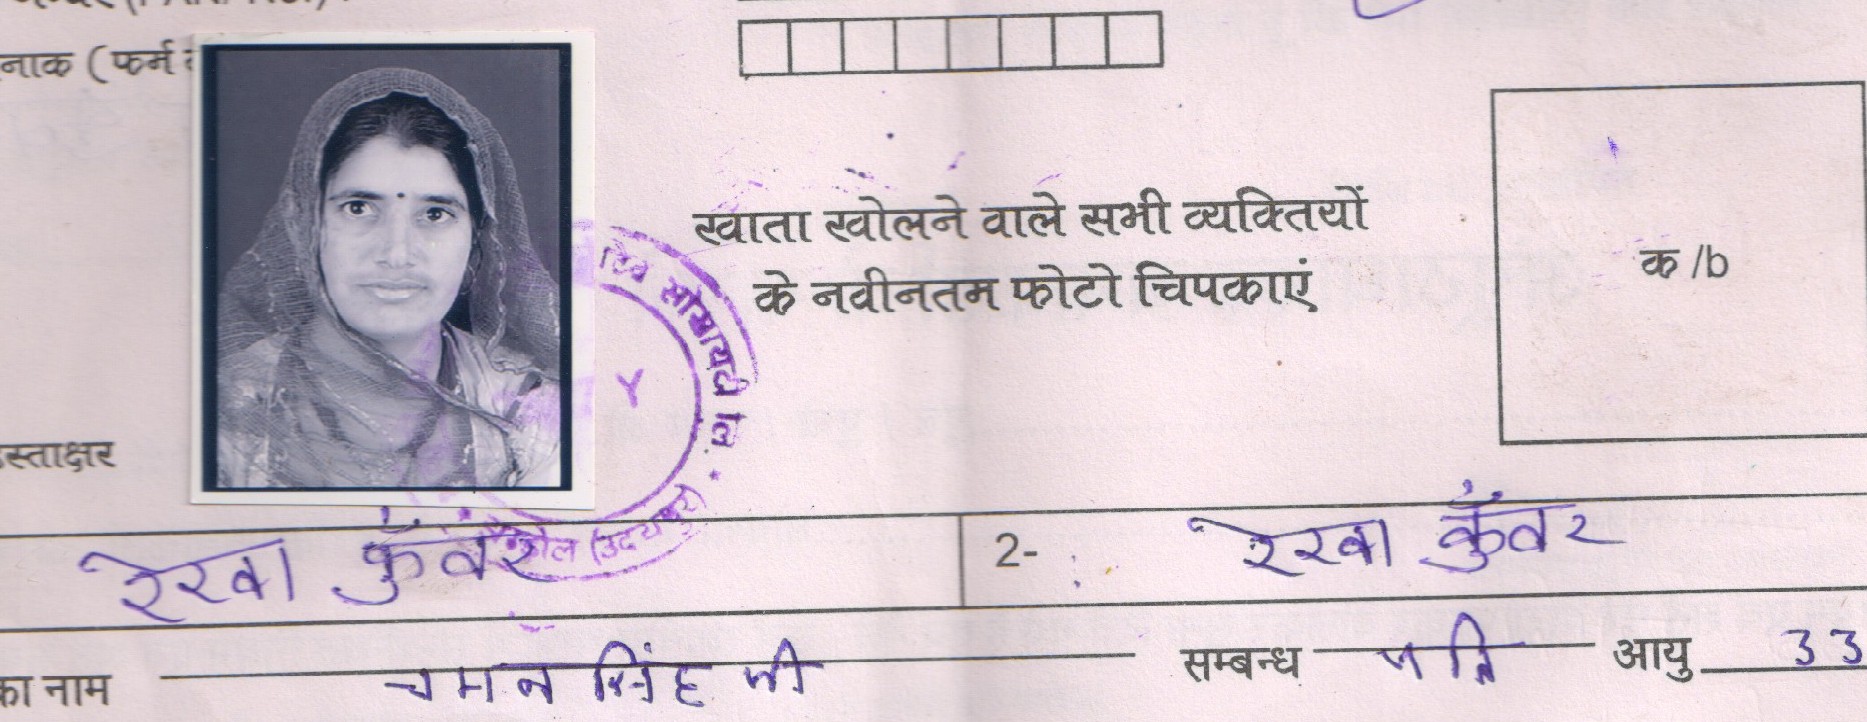 नाक (फर्म
खाता खोलने वाले सभी व्यक्तियों
के नवीनतम फोटो चिपकाएं
क /b
सोसायटी लि.
Y
स्ताक्षर
रेखा कुँवर
2- रेखा कुँवर
का नाम चमन सिंह जी सम्बन्ध पति आयु 33